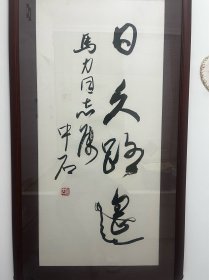 日久路遥
馬力同志属
中石